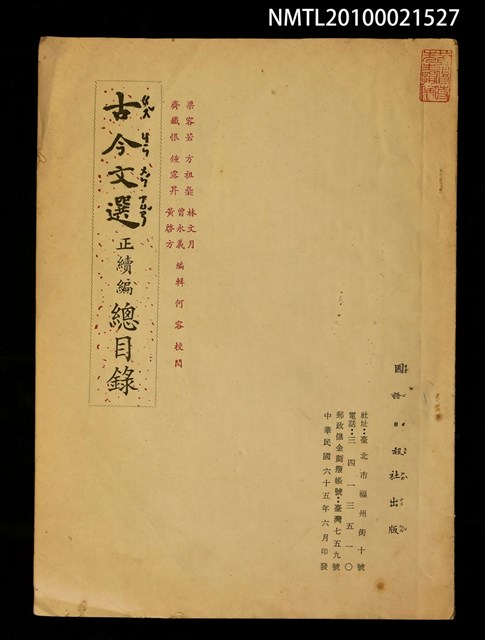 NMTL20100021527
古今文選
ㄍㄨˇ ㄐㄧㄣ ㄨㄣˊ ㄒㄩㄢˇ
正續編
總目錄
梁容若 方祖燊 林文月
齊鐵恨 鍾露昇 曾永義 編輯 何容 校閱
黃啓方
國語日報社出版
社址：臺北市福州街十號
電話：三四一三五一〇
郵政儲金劃撥帳號：臺灣七五九號
中華民國六十五年六月印發